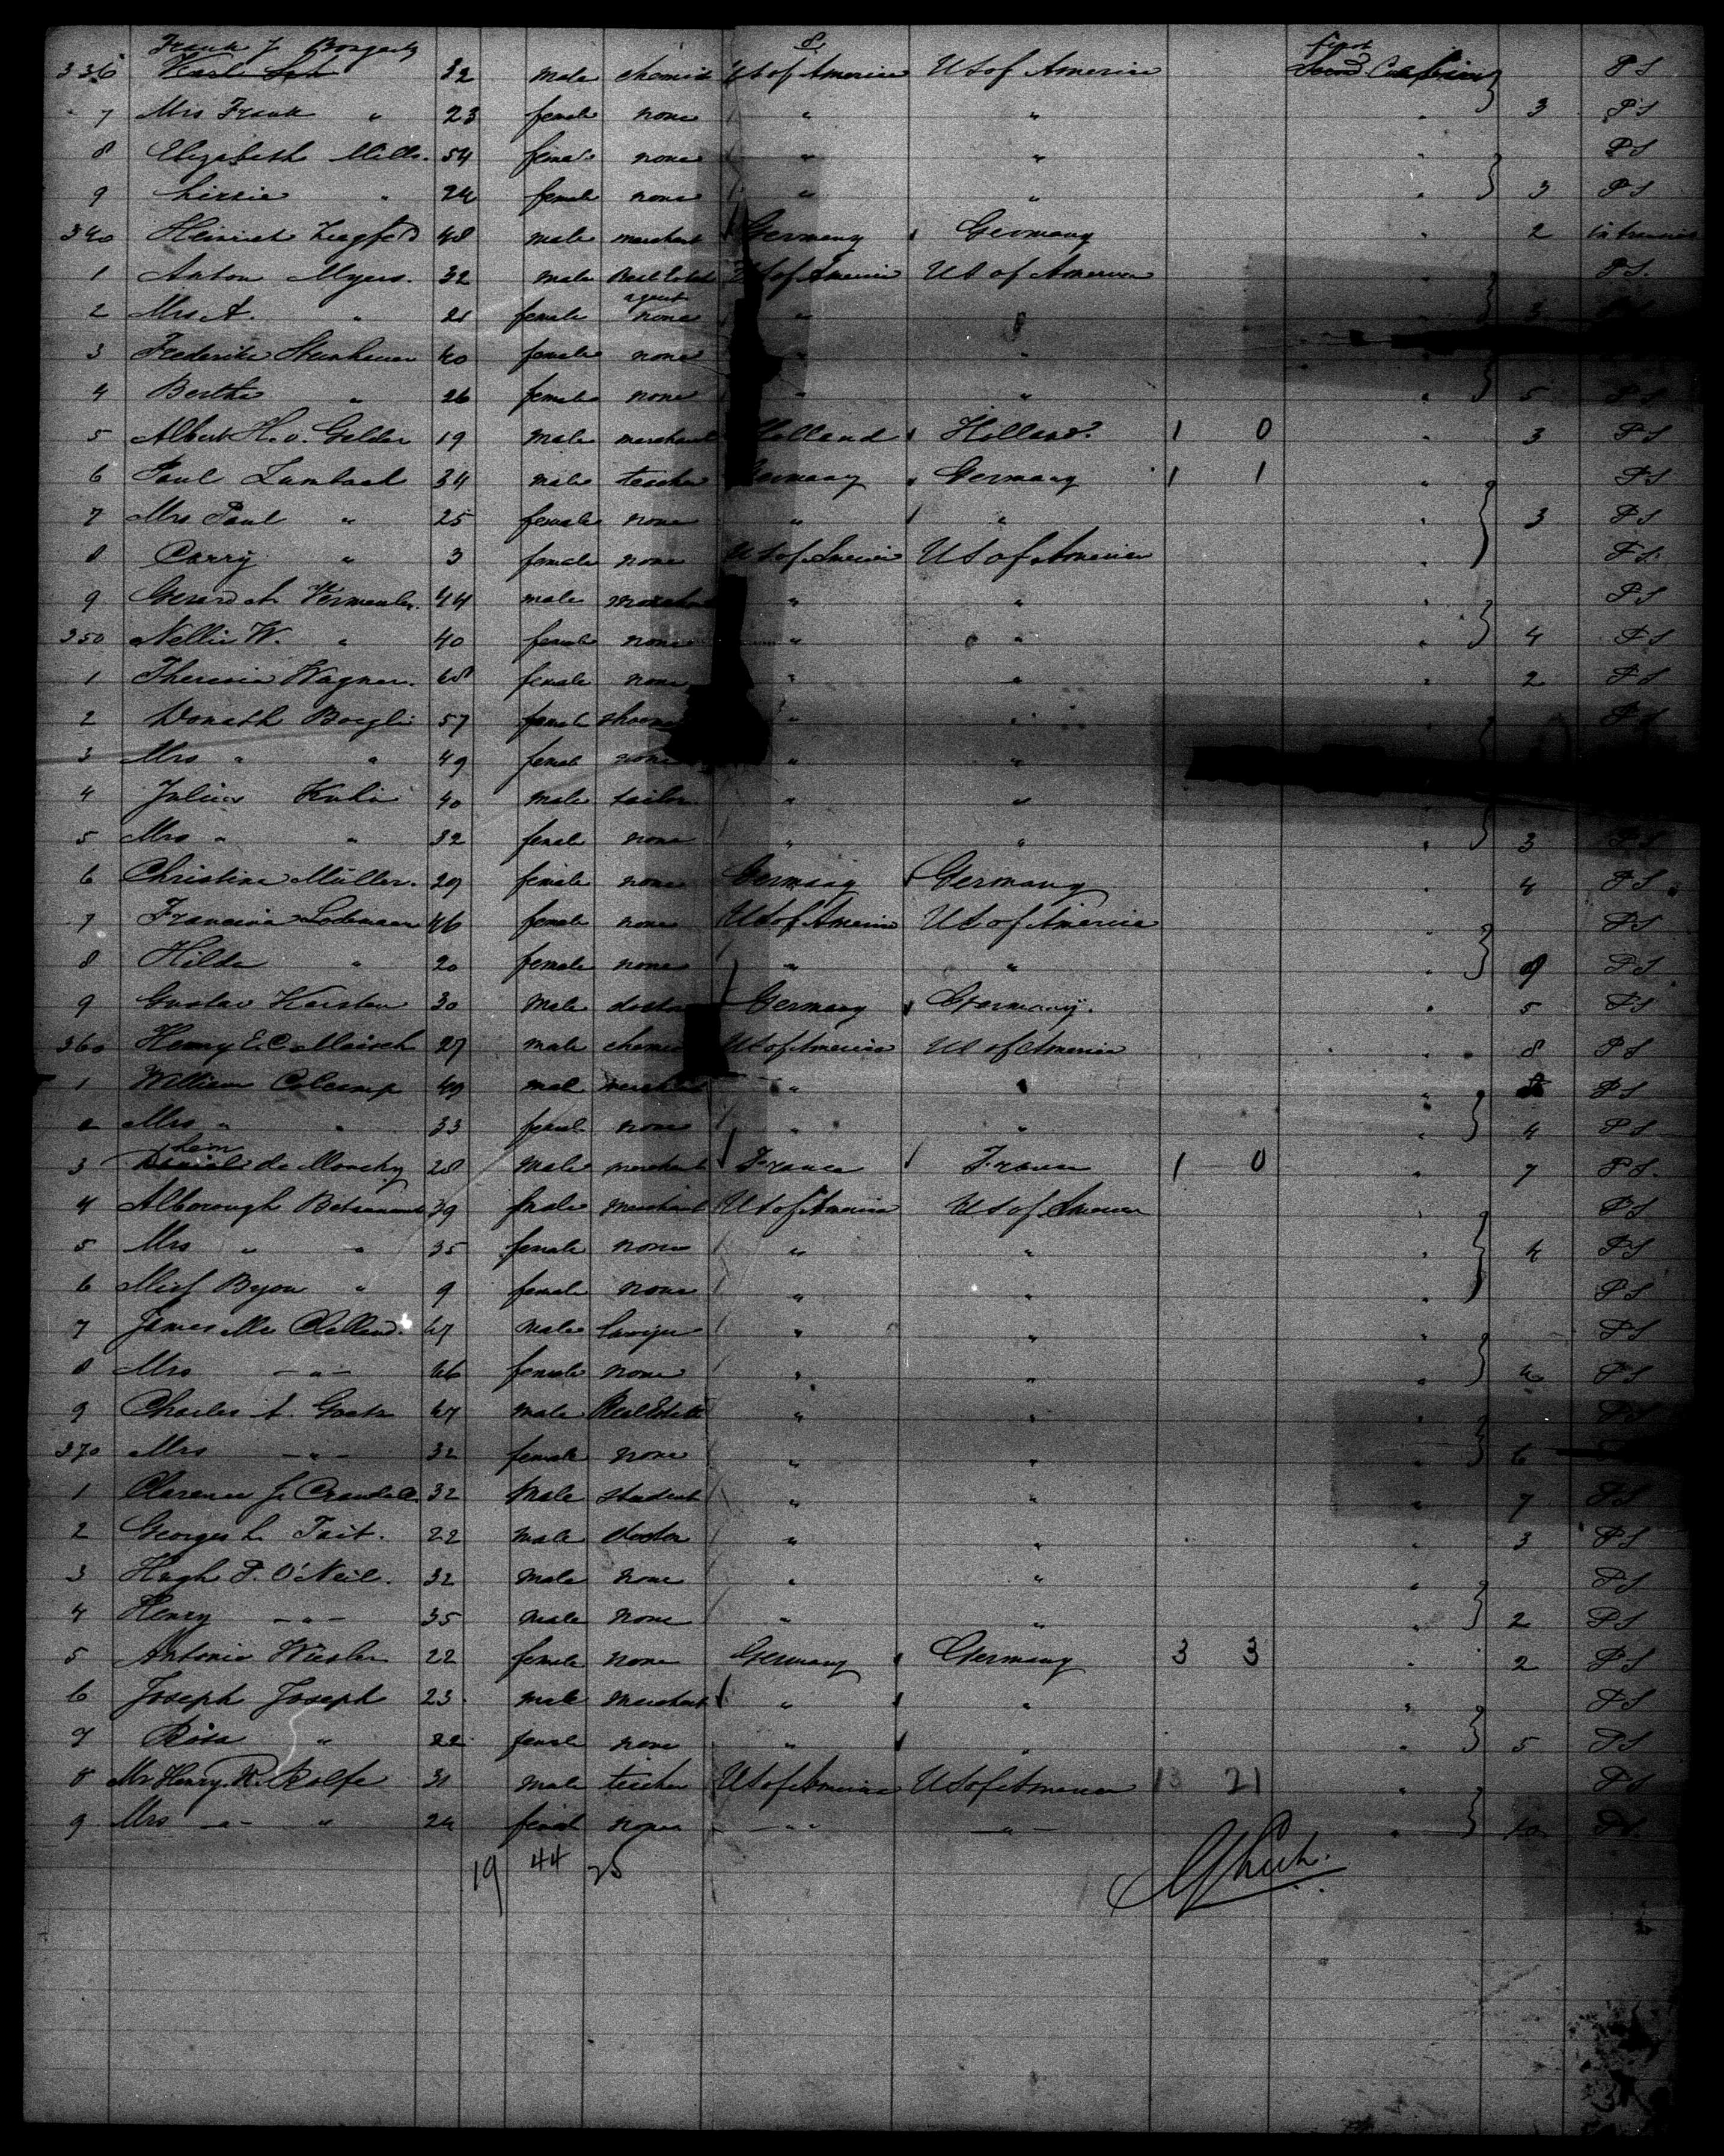 8
Frank J. Bongartz first
336 32 male chemist US of America US of America Second Cabin PS
7 Mrs Frank " 23 female none " " " 3 PS
8 Elizabeth Mills. 54 female none " " " PS
9 Lizzie " 24 female none " " " 3 PS
340 Heinrich 48 male merchant Germany Germany " 2 in transit
1 Anton Myers. 32 male Real Estate US of America US of America " PS.
agent
2 Mrs A. " 21 female none " " 3 PS
3 Frederike 40 female none " "
4 Bertha " 26 female none " " " 5 PS
5 Albert H. v. Gelder 19 male merchant Holland Holland. 1 0 " 3 PS
6 Paul Lambach 34 male teacher Germany Germany 1 1 " PS
7 Mrs Paul " 25 female none " " " 3 PS
8 Carry " 3 female none US of America US of America " PS.
9 Gerard A. Vermeulen. 44 male merchant " " " PS
350 Nellie W. " 40 female none " " " 4 PS
1 Theresia Wagner. 68 female none " " " 2 PS
2 Donath Boegli 57 " " PS
3 Mrs " " 49 female none " "
4 Julius Kuhn 40 male tailor " "
5 Mrs " " 32 female none " " " 3 PS
6 Christine Müller. 29 female none Germany Germany " 4 PS
7 Lodemann 46 female none US of America US of America " PS
8 Hilda " 20 female none " " " 9 PS
9 Gustav Karsten 30 male doctor Germany Germany. " 5 PS
360 Henry E. C. Maisch 27 male chemist US of America US of America " 8 PS
1 William 49 male merchant " " " PS
2 Mrs " " 33 female none " " " 4 PS
3 de Monchy 28 male merchant France France 1 0 " 7 PS.
4 39 male merchant US of America US of America PS
5 Mrs " " 35 female none " " " 4 PS
6 Miss Byon " 9 female none " " " PS
7 James Mc Clelland. 47 male " " " PS
8 Mrs - " - 46 female none " " " 4 PS
9 Charles A. Goetz 47 male Real Estate " " " PS
370 Mrs - " - 32 female none " " " 6
1 Clarence J. Crandall. 32 male student " " " 7 PS
2 Georges L. Tait. 22 male doctor " " " 3 PS
3 Hugh P. O'Neil. 32 male none " " " PS
4 Henry - " - 35 male none " " " 2 PS
5 Antonie Wiesler 22 female none Germany Germany 3 3 " 2 PS
6 Joseph Joseph 23 male merchant " " " PS
7 Rosa " 22 female none " " " 5 PS
8 Mr. Henry. W. Rolfe 31 male teacher US of America US of America 13 21 " PS
9 Mrs - " - " 24 female none - " " - " - " 10 PS
19 44 25